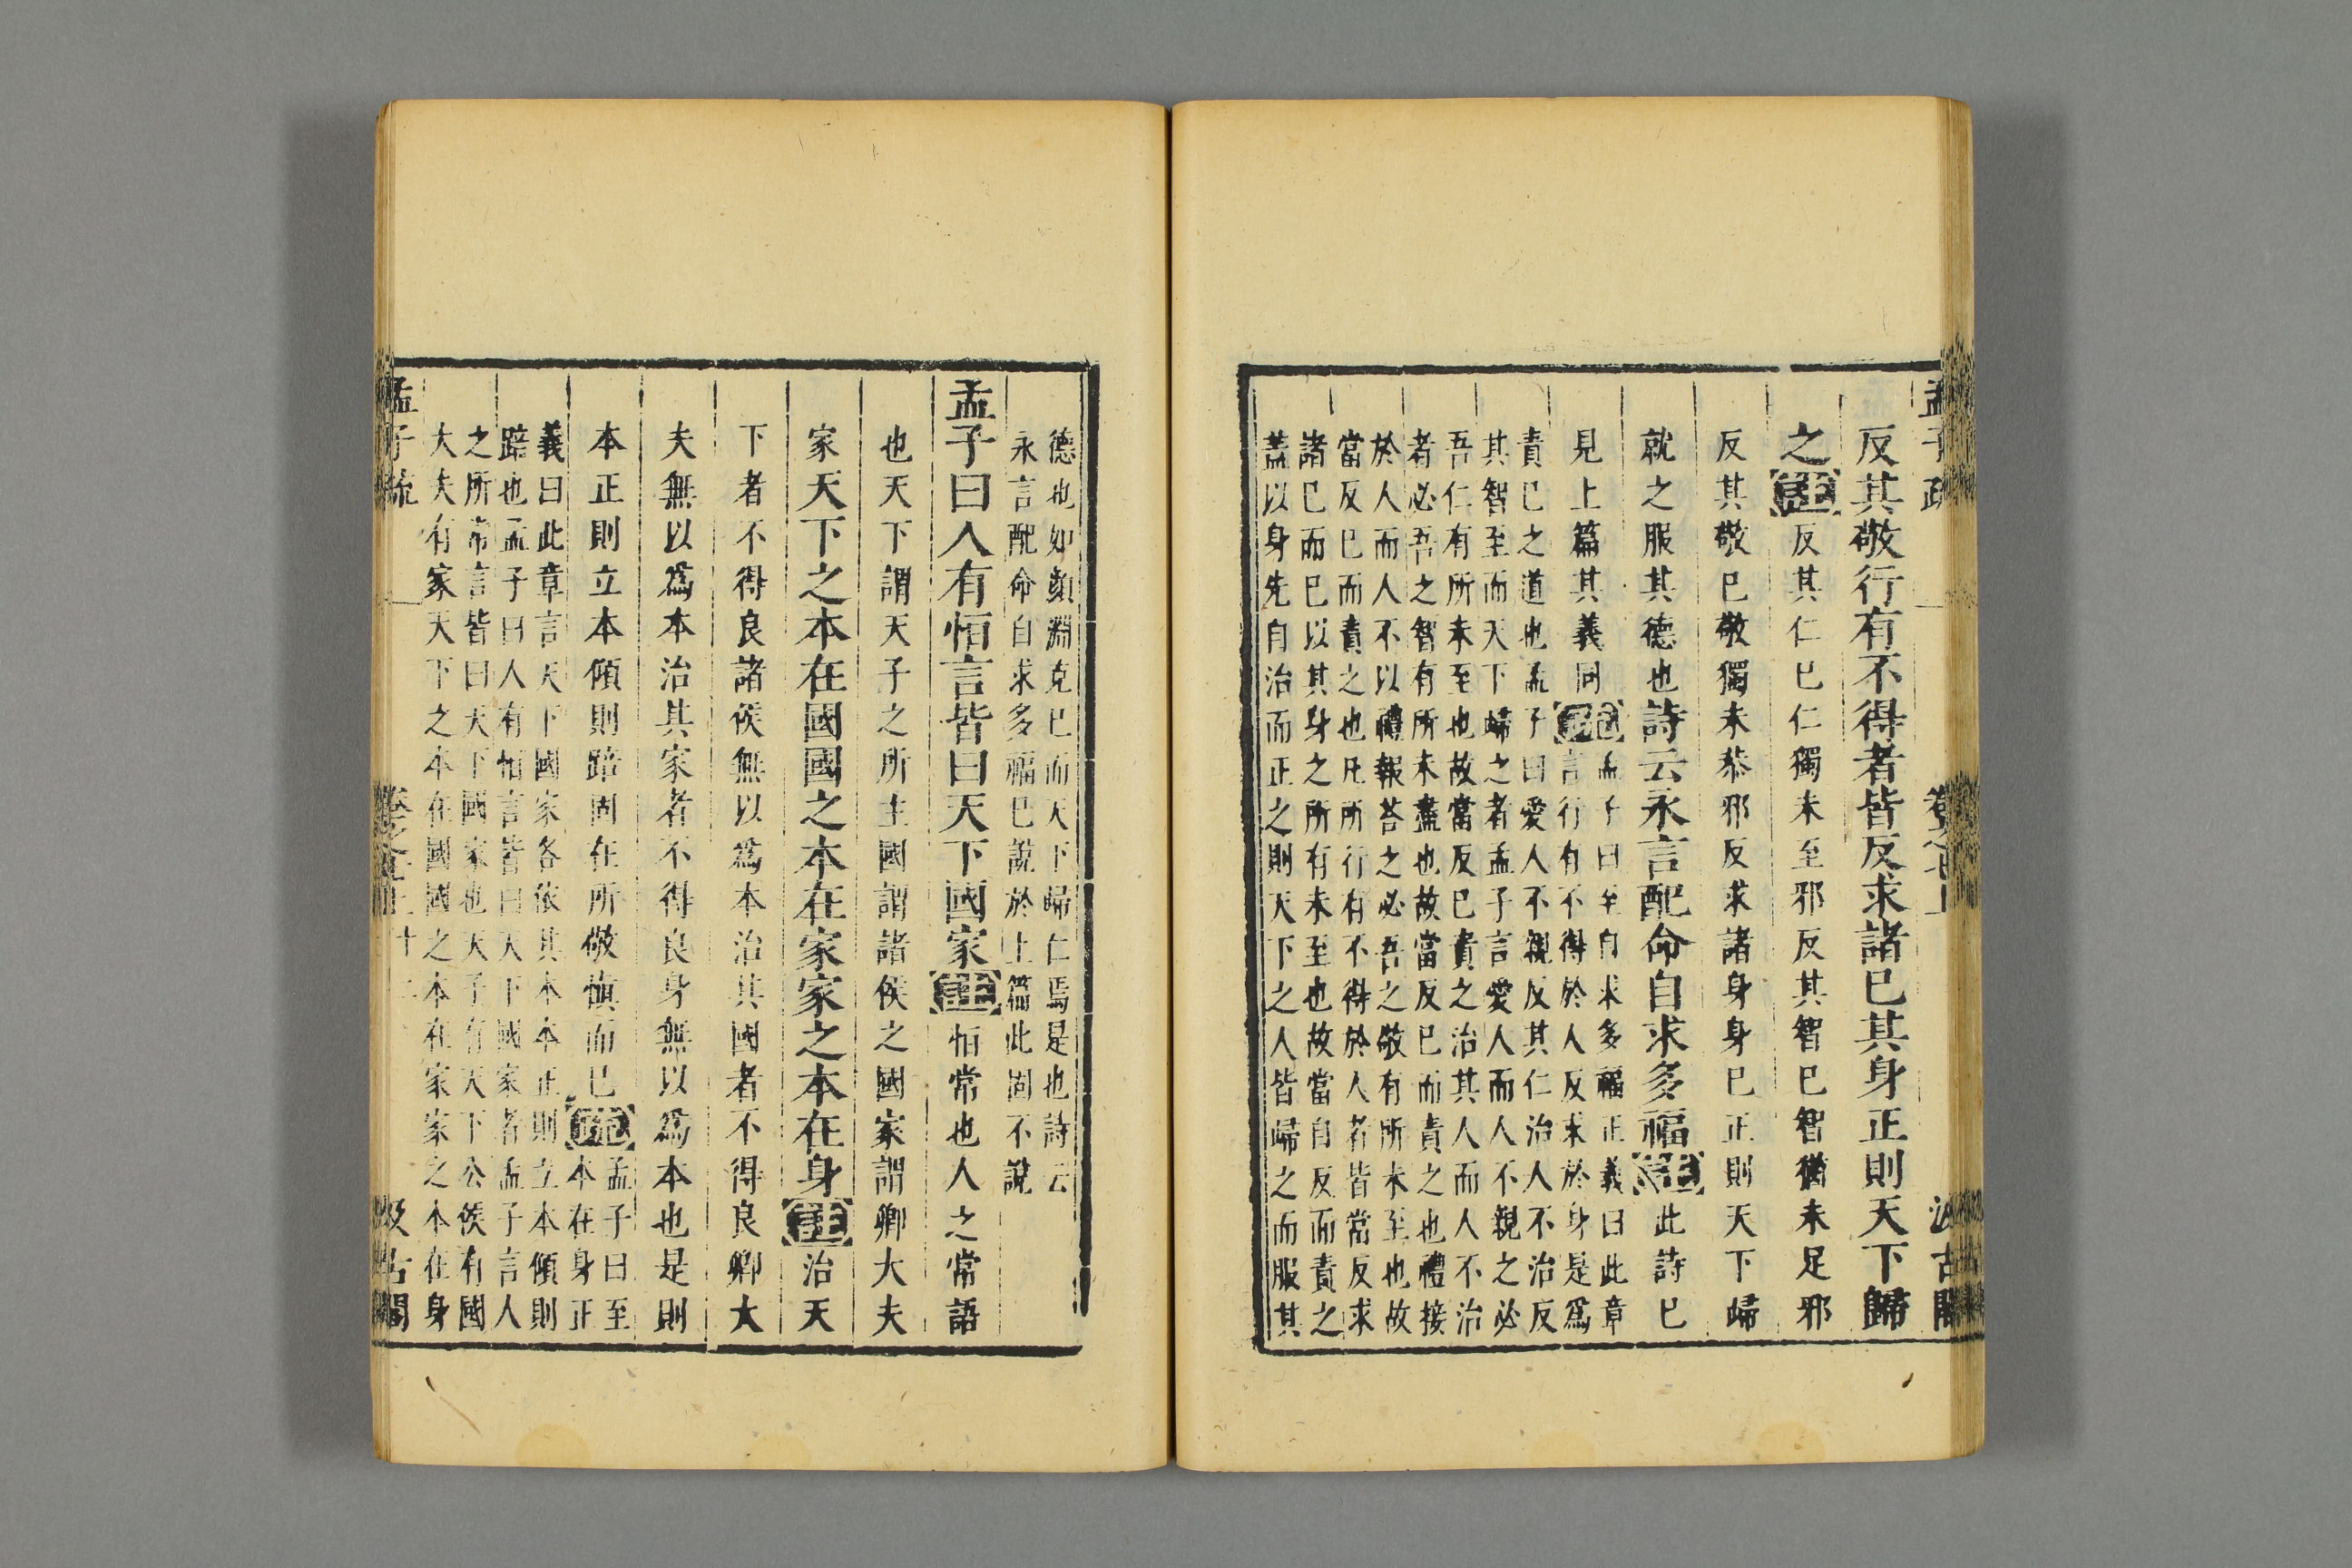 孟子疏 卷七上 汲古閣
反其敬行有不得者皆反求諸巳其身正則天下歸
之註反其仁巳仁獨未至邪反其智巳智猶未足邪
反其敬巳敬獨未恭邪反求諸身身巳正則天下歸
就之服其德也詩云永言配命自求多福註此詩巳
見上篇其義同疏孟子曰至自求多福正義曰此章
言行有不得於人反求於身是爲
責巳之道也孟子曰愛人不親反其仁治人不治反
其智至而天下歸之者孟子言愛人而人不親之必
吾仁有所未至也故當反巳責之治其人而人不治
者必吾之智有所未盡也故當反巳而責之也禮接
於人而人不以禮報荅之必吾之敬有所未至也故
當反巳而責之也凡所行有不得於人者皆當反求
諸巳而巳以其身之所有未至也故當自反而責之
蓋以身先自治而正之則天下之人皆歸之而服其
德也如顏淵克巳而天下歸仁焉是也詩云
永言配命自求多福巳說於上篇此固不說
孟子曰人有恒言皆曰天下國家註恒常也人之常語
也天下謂天子之所主國謂諸侯之國家謂卿大夫
家天下之本在國國之本在家家之本在身註治天
下者不得良諸侯無以爲本治其國者不得良卿大
夫無以爲本治其家者不得良身無以爲本也是則
本正則立本傾則踣固在所敬慎而巳疏孟子曰至
本在身正
義曰此章言天下國家各依其本本正則立本傾則
踣也孟子曰人有恒言皆曰天下國家者孟子言人
之所常言皆曰天下國家也天子有天下公侯有國
大夫有家天下之本在國國之本在家家之本在身
孟子疏 卷七上 十二 汲古閣